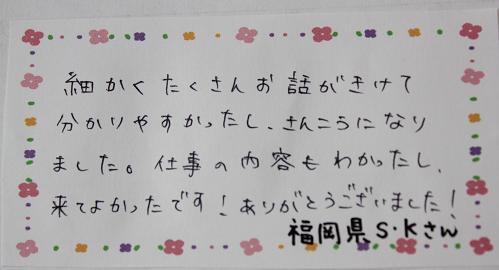 細かくたくさんお話がきけて
分かりやすかったし、さんこうになり
ました。仕事の内容もわかったし、
来てよかったです！ありがとうございました！
福岡県S・Kさん